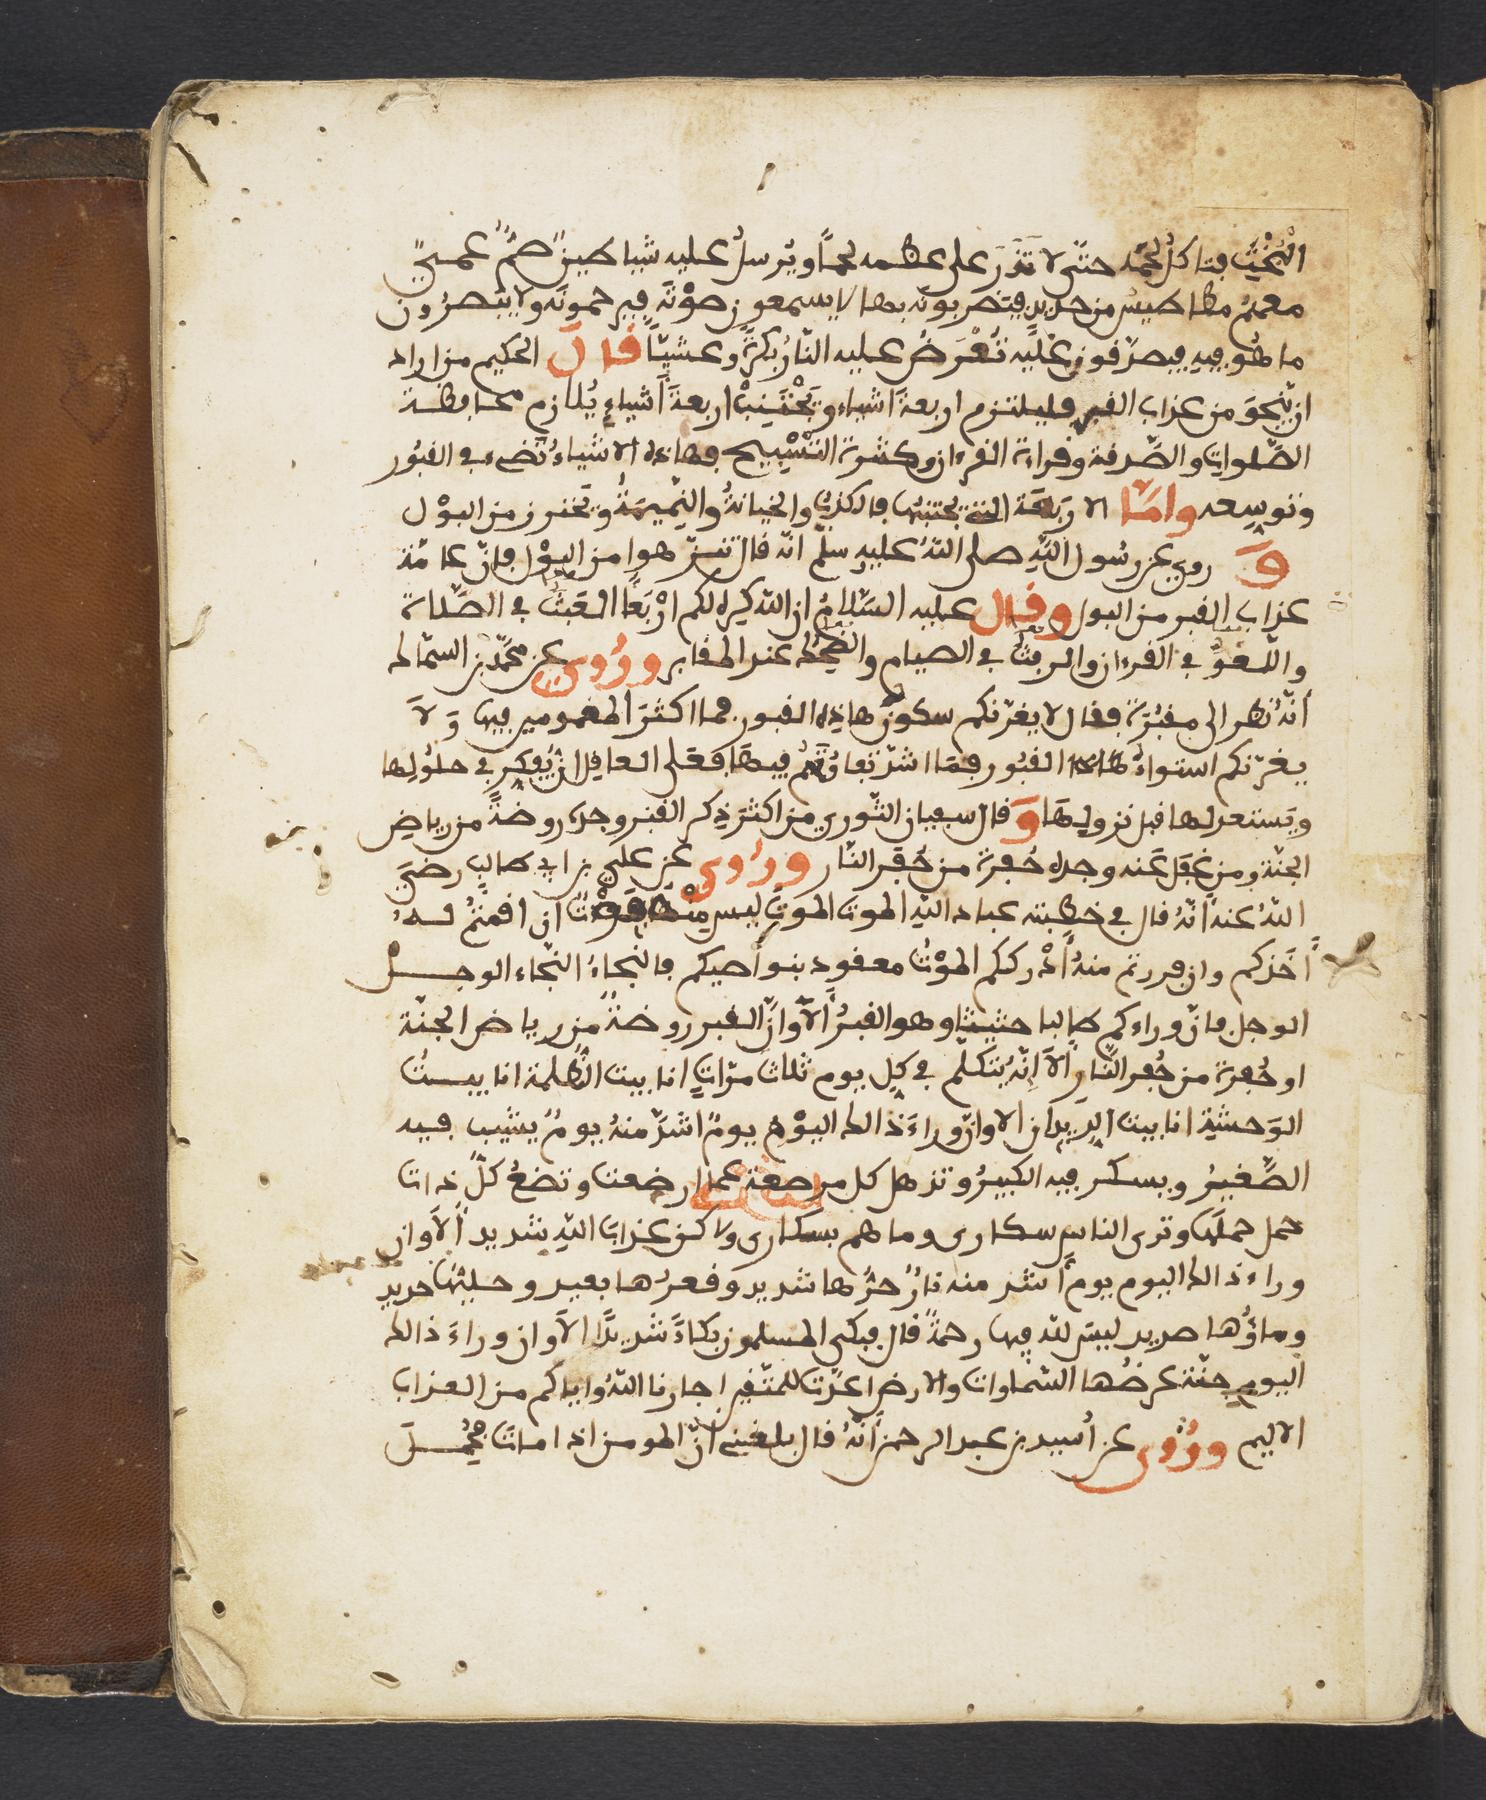 البُخْتِ فتاكلُ لحمَه حتّى لا تَذَرَ على عظمه لحمًا ويُرسلُ عليه شياطينُ صُمٌّ عميٌ
معهمْ مطاطيسُ من حديدٍ فيضربونَه بها لا يسمعون صوْتَه فيرحمونَه ولا يبصرُون
ما هُو فيهِ فيصرّفون عليْه تُعْرَضُ عليه النّارُ بكرةً وعشيّاً قالَ الحكيم من اراد
ان ينجوَ من عذاب القبر فليلتزم اربعةَ اشياء ويَجْتَنِبْ اربعةَ أشياءٍ يُلازم محافظة
الصّلوات والصّدقة وقراءة القرءان وكثرة التّسْبيح فهاذه الاشياءُ تُضيء في القبُور
وتوسِعه وامّا الاربَعَة التى يجتنبُها فالكذبُ والخيانةُ والنّميمَةُ وتحترز من البوْل
وَ روي عن رسُول اللّهِ صلى اللّهُ عليه وسلّم انّه قال تنزّهوا من البوْل فإنّ عامّة
عذاب القبر من البول وقال عليه السّلامُ ان اللّه كره لكم ارْبَعًا العَبَثُ في الصّلاة
واللّغوُ في القرءان والرفثُ في الصيام والضّحك عند المقابر ورُوي عن محمّد بن السّماك
أنّه نظر الى مقبُرَة فقال لا يغرّنكم سكونُ هاذِه القبور فما اكثرَ المغمومين فيها وَلَا
يغرّنكم استواءُ هاذه القبُور فمَا اشدّ تفاوُتَهُمْ فيهَا فعَلى العاقِل ان يُفكِر في حلولها
ويَستعد لها قبل نزولِهَا وَ قال سفيان الثّوري من اكثرَ ذِكر القبر وجدَه روضةً من رياضِ
الجنّة ومن غفلَ عنه وجدَه حُفرة من حُفَر النّار ورُوي عن علي بن ابي طالب رضيَ
اللّهُ عنه أنّهُ قال في خطبته عباد اللّهِ الموت الموتَ ليس مِنْهُ فَوْتٌ ان اقمتمْ لهُ
أخَذكم وان فررتم منهُ أدْرككم الموْتُ معقود بنواصيكم فالنجاءُ النّجاء الوجل
الوجل فانّ وراءكم طالبا حثيثا وهو القبرُ ألا وانّ القبر روضةٌ من رياض الجنّة
او حُفرة من حُفر النّارِ ألا انّهُ يتكلّم في كلِ يوم ثلاث مرّاتٍ انا بيت الظُّلمة انا بيت
الوَحشة انا بيت الدِيدان الا وانّ وراءَ ذالك اليوْم يومًا اشدّ منهُ يومٌ يشيب فيه
الصّغيرُ ويسكر فيه الكبيرُ وتذهل كل مرضعة عما ارضعت وتضعُ كلّ ذات
حمل حملَها وترى الناس سكارى وما هم بسكارى ولاكن عذابَ اللّهِ شديد ألا وان
وراء ذالك اليوم يوم أشد منه نارٌ حرُّها شديد وقعرُها بعيد وحليُها حديد
وماؤُها صديد ليسَ للّه فِيها رحمةٌ قال فبكى المسلمون بكاءً شديدًا ألا وان وراءَ ذالك
اليومِ جنّة عرضُها السّماوات والارض اعدّت للمتّقين اجارنا اللّهُ واياكم من العذاب
الاليم ورُوي عن اُسيد بن عبد الرحمن أنّهُ قال بلغنِي أنّ المومن اذا ماتَ حُمِلَ